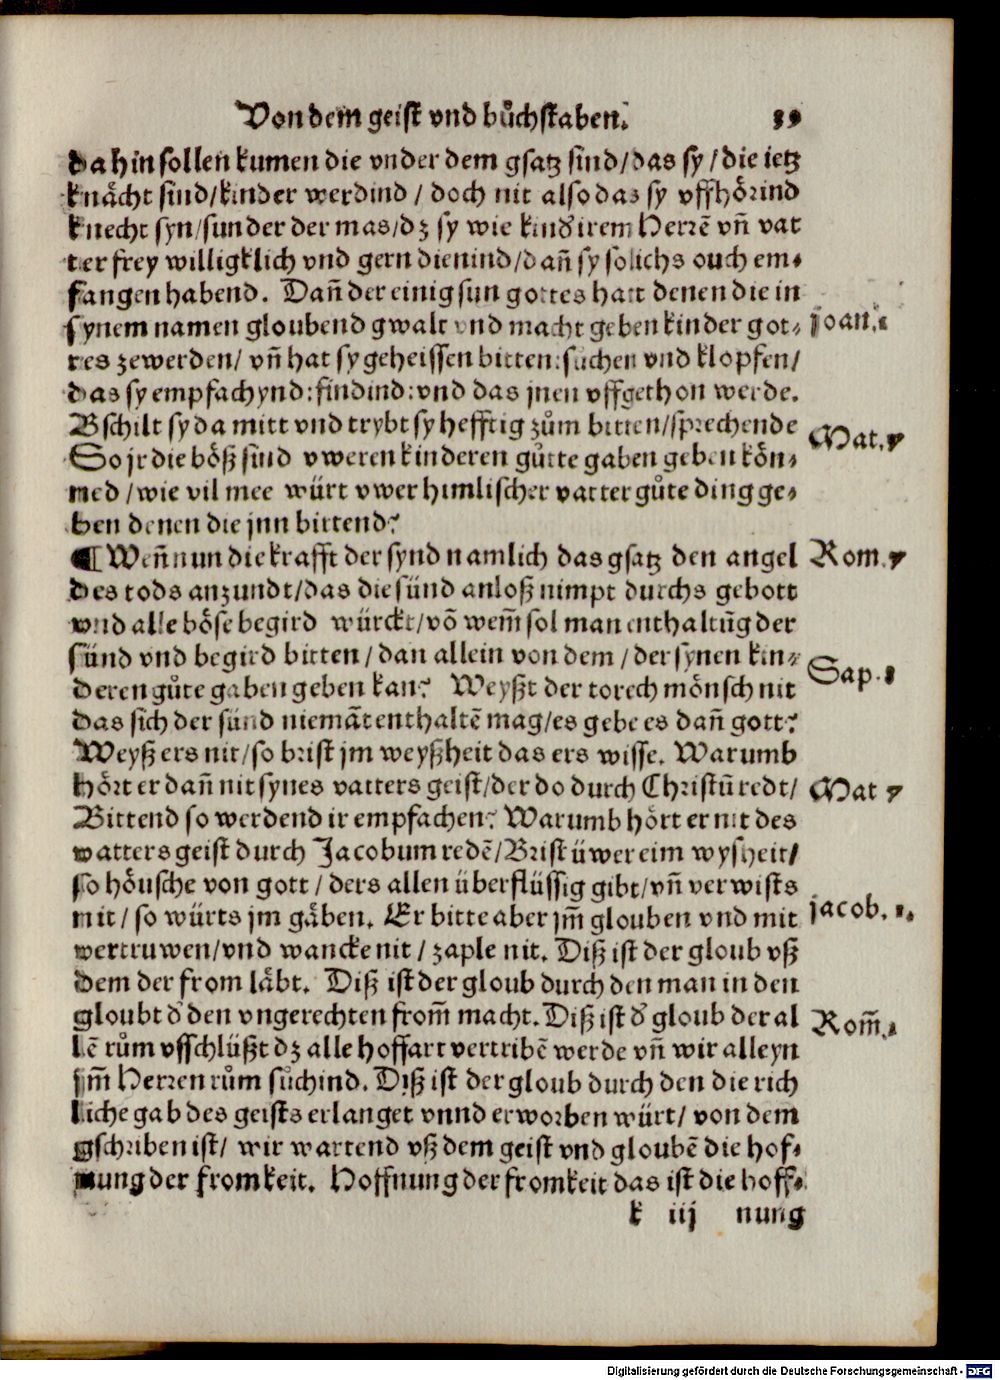 Von dem geist vnd bůchstaben. 39
da hin sollen kumen die vnder dem gsatz sind/das sy/die ietz
knächt sind/kinder werdind / doch nit also das sy vffhörind
knecht syn/sunder der mas/dz sy wie kind irem Herrē vn̄ vat
ter frey willigklich vnd gern dienind/dan̄ sy solichs ouch em⸗
fangen habend. Dan̄ der einig sun gottes hatt denen die in
synem namen gloubend gwalt vnd macht geben kinder got⸗ Joan.1
tes zewerden/ vn̄ hat sy geheissen bitten:sůchen vnd klopfen/
das sy empfachynd:findind:vnd das jnen vffgethon werde.
Bschilt sy da mitt vnd trybt sy hefftig zům bitten/sprechende Mat.7
So jr die böß sind vweren kinderen gůtte gaben geben kön⸗
ned /wie vil mee würt vwer himlischer vatter gůte ding ge⸗
ben denen die jnn bittend?
¶ Wen̄ nun die krafft der synd namlich das gsatz den angel Rom.7
des tods anzundt/das die sünd anloß nimpt durchs gebott
vnd alle böse begird würckt/vō wem̄ sol man enthaltūg der
sünd vnd begird bitten / dan allein von dem / der synen kin⸗ Sap.8
deren gůte gaben geben kan? Weyßt der torech mönsch nit
das sich der sünd niemāt enthaltē mag/es gebe es dan̄ gott?
Weyß ers nit/so brist jm weyßheit das ers wisse. Warumb
hört er dan̄ nit synes vatters geist/der do durch Christū redt/ Mat 7
Bittend so werdend ir empfachen? Warumb hört er nit des
vatters geist durch Jacobum redē/Brist üwer eim wysheit/
so höusche von gott / ders allen überflüssig gibt/vn̄ verwists
nit / so würts jm gäben. Er bitte aber jm̄ glouben vnd mit Jacob. 1.
vertruwen/vnd wancke nit / zaple nit. Diß ist der gloub vß
dem der from läbt. Diß ist der gloub durch den man in den
gloubt d̕ den vngerechten from̄ macht. Diß ist d̕ gloub der al Rom̄.
lē rům vsschlüßt dz alle hoffart vertribē werde vn̄ wir alleyn
jm̄ Herren rům sůchind. Diß ist der gloub durch den die rich
liche gab des geists erlanget vnnd erworben würt/ von dem
gschriben ist/ wir wartend vß dem geist vnd gloubē die hof⸗
nung der fromkeit. Hoffnung der fromkeit das ist die hoff⸗
k iij nung
Digitalisierung gefördert durch die Deutsche Forschungsgemeinschaft - DFG